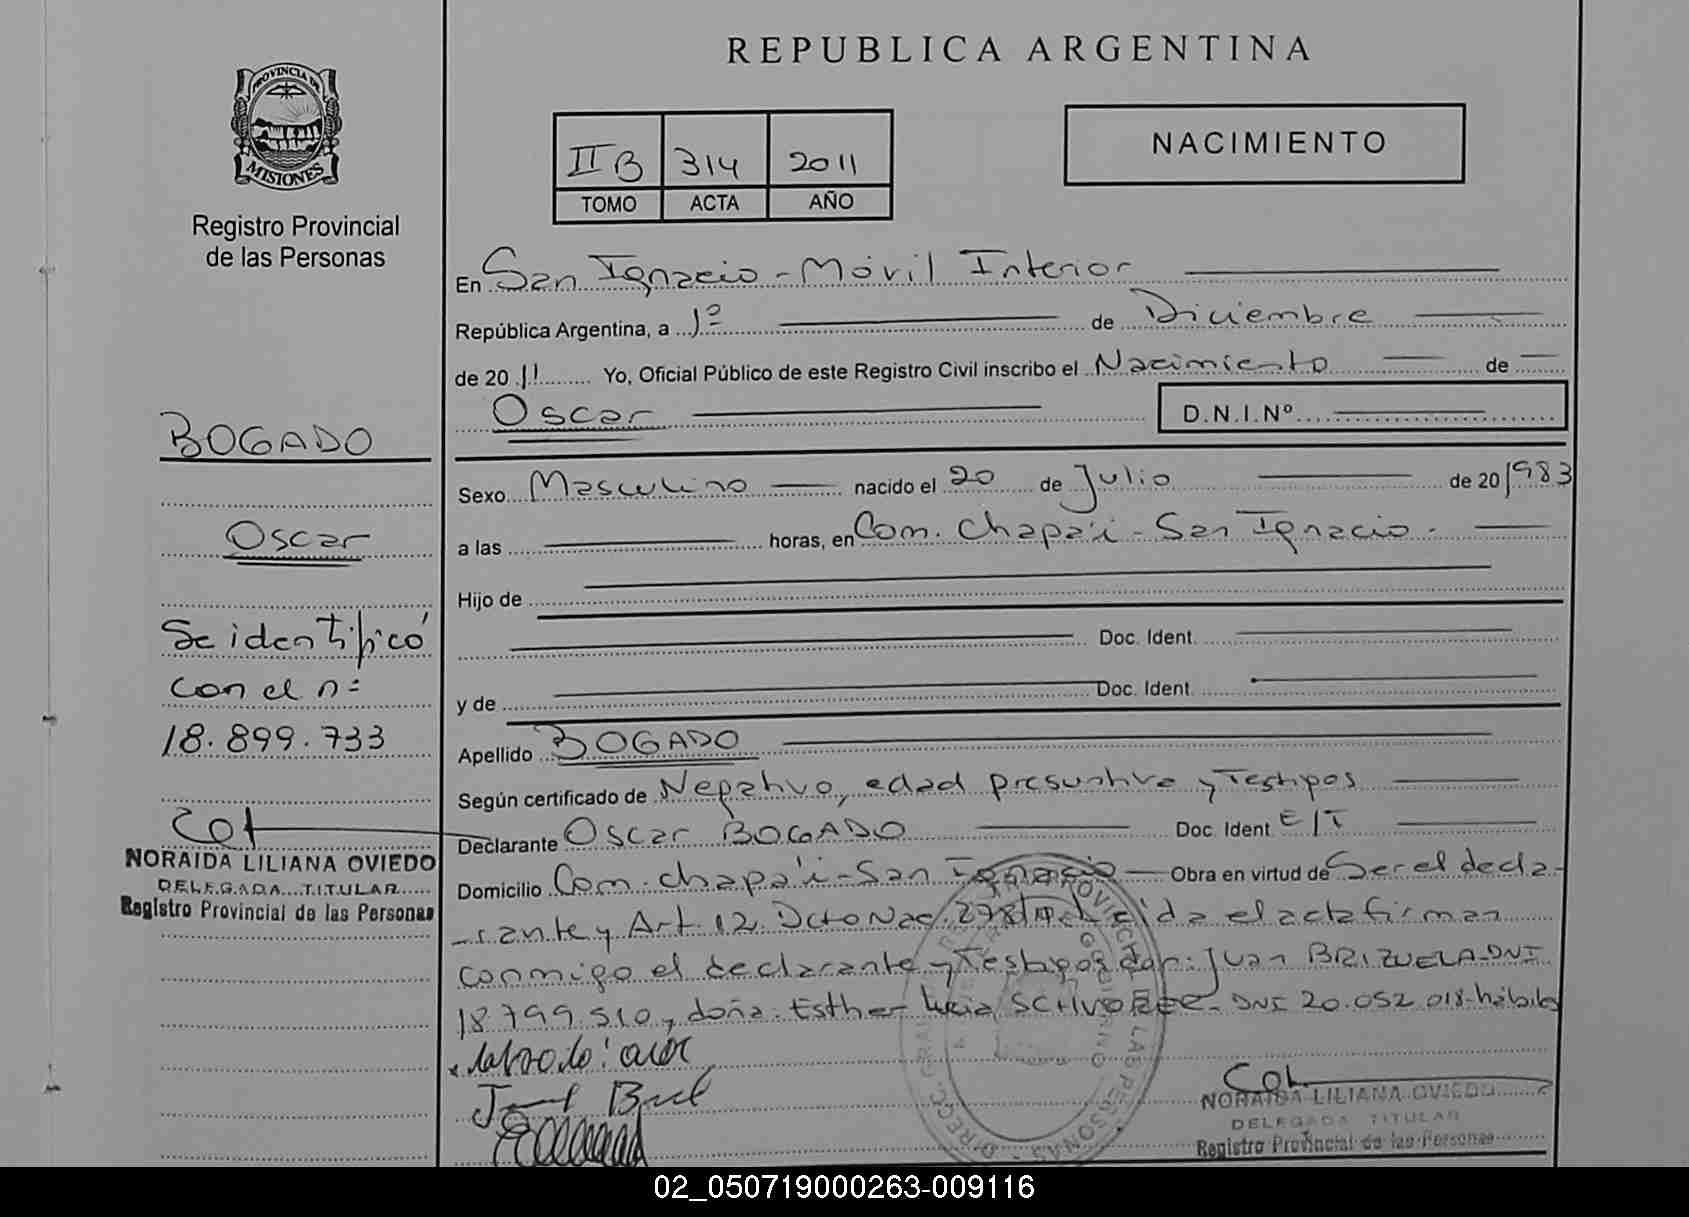 REPUBLICA ARGENTINA
PROVINCIA DE
MISIONES
Registro Provincial
de las Personas
II B 314 2011
TOMO ACTA AÑO
NACIMIENTO
En San Ignacio - Móvil Interior
República Argentina, a 1º de Diciembre
de 20 11 Yo, Oficial Público de este Registro Civil inscribo el Nacimiento de
Oscar
D.N.I.Nº
BOGADO
Oscar
Se identificó
con el nº
18.899.733
NORAIDA LILIANA OVIEDO
DELEGADA TITULAR
Registro Provincial de las Personas
Sexo Masculino nacido el 20 de Julio de 20 1983
a las horas, en Com. Chapa'i - San Ignacio.
Hijo de
Doc. Ident.
y de Doc. Ident.
Apellido BOGADO
Según certificado de Negativo, edad presuntiva y Testigos
Declarante Oscar BOGADO Doc. Ident E/T
Domicilio Com. Chapa'i - San Ignacio Obra en virtud de Ser el decla-
rante y Art. 12. Dcto Nac. 278/ el acta firman
conmigo el declarante y Testigos don: Juan BRIZUELA DNI
18.799.510 y doña: Esther DNI 20.052.018- hábiles
NORAIDA LILIANA OVIEDO
DELEGADA TITULAR
Registro Provincial de las Personas
02_050719000263-009116